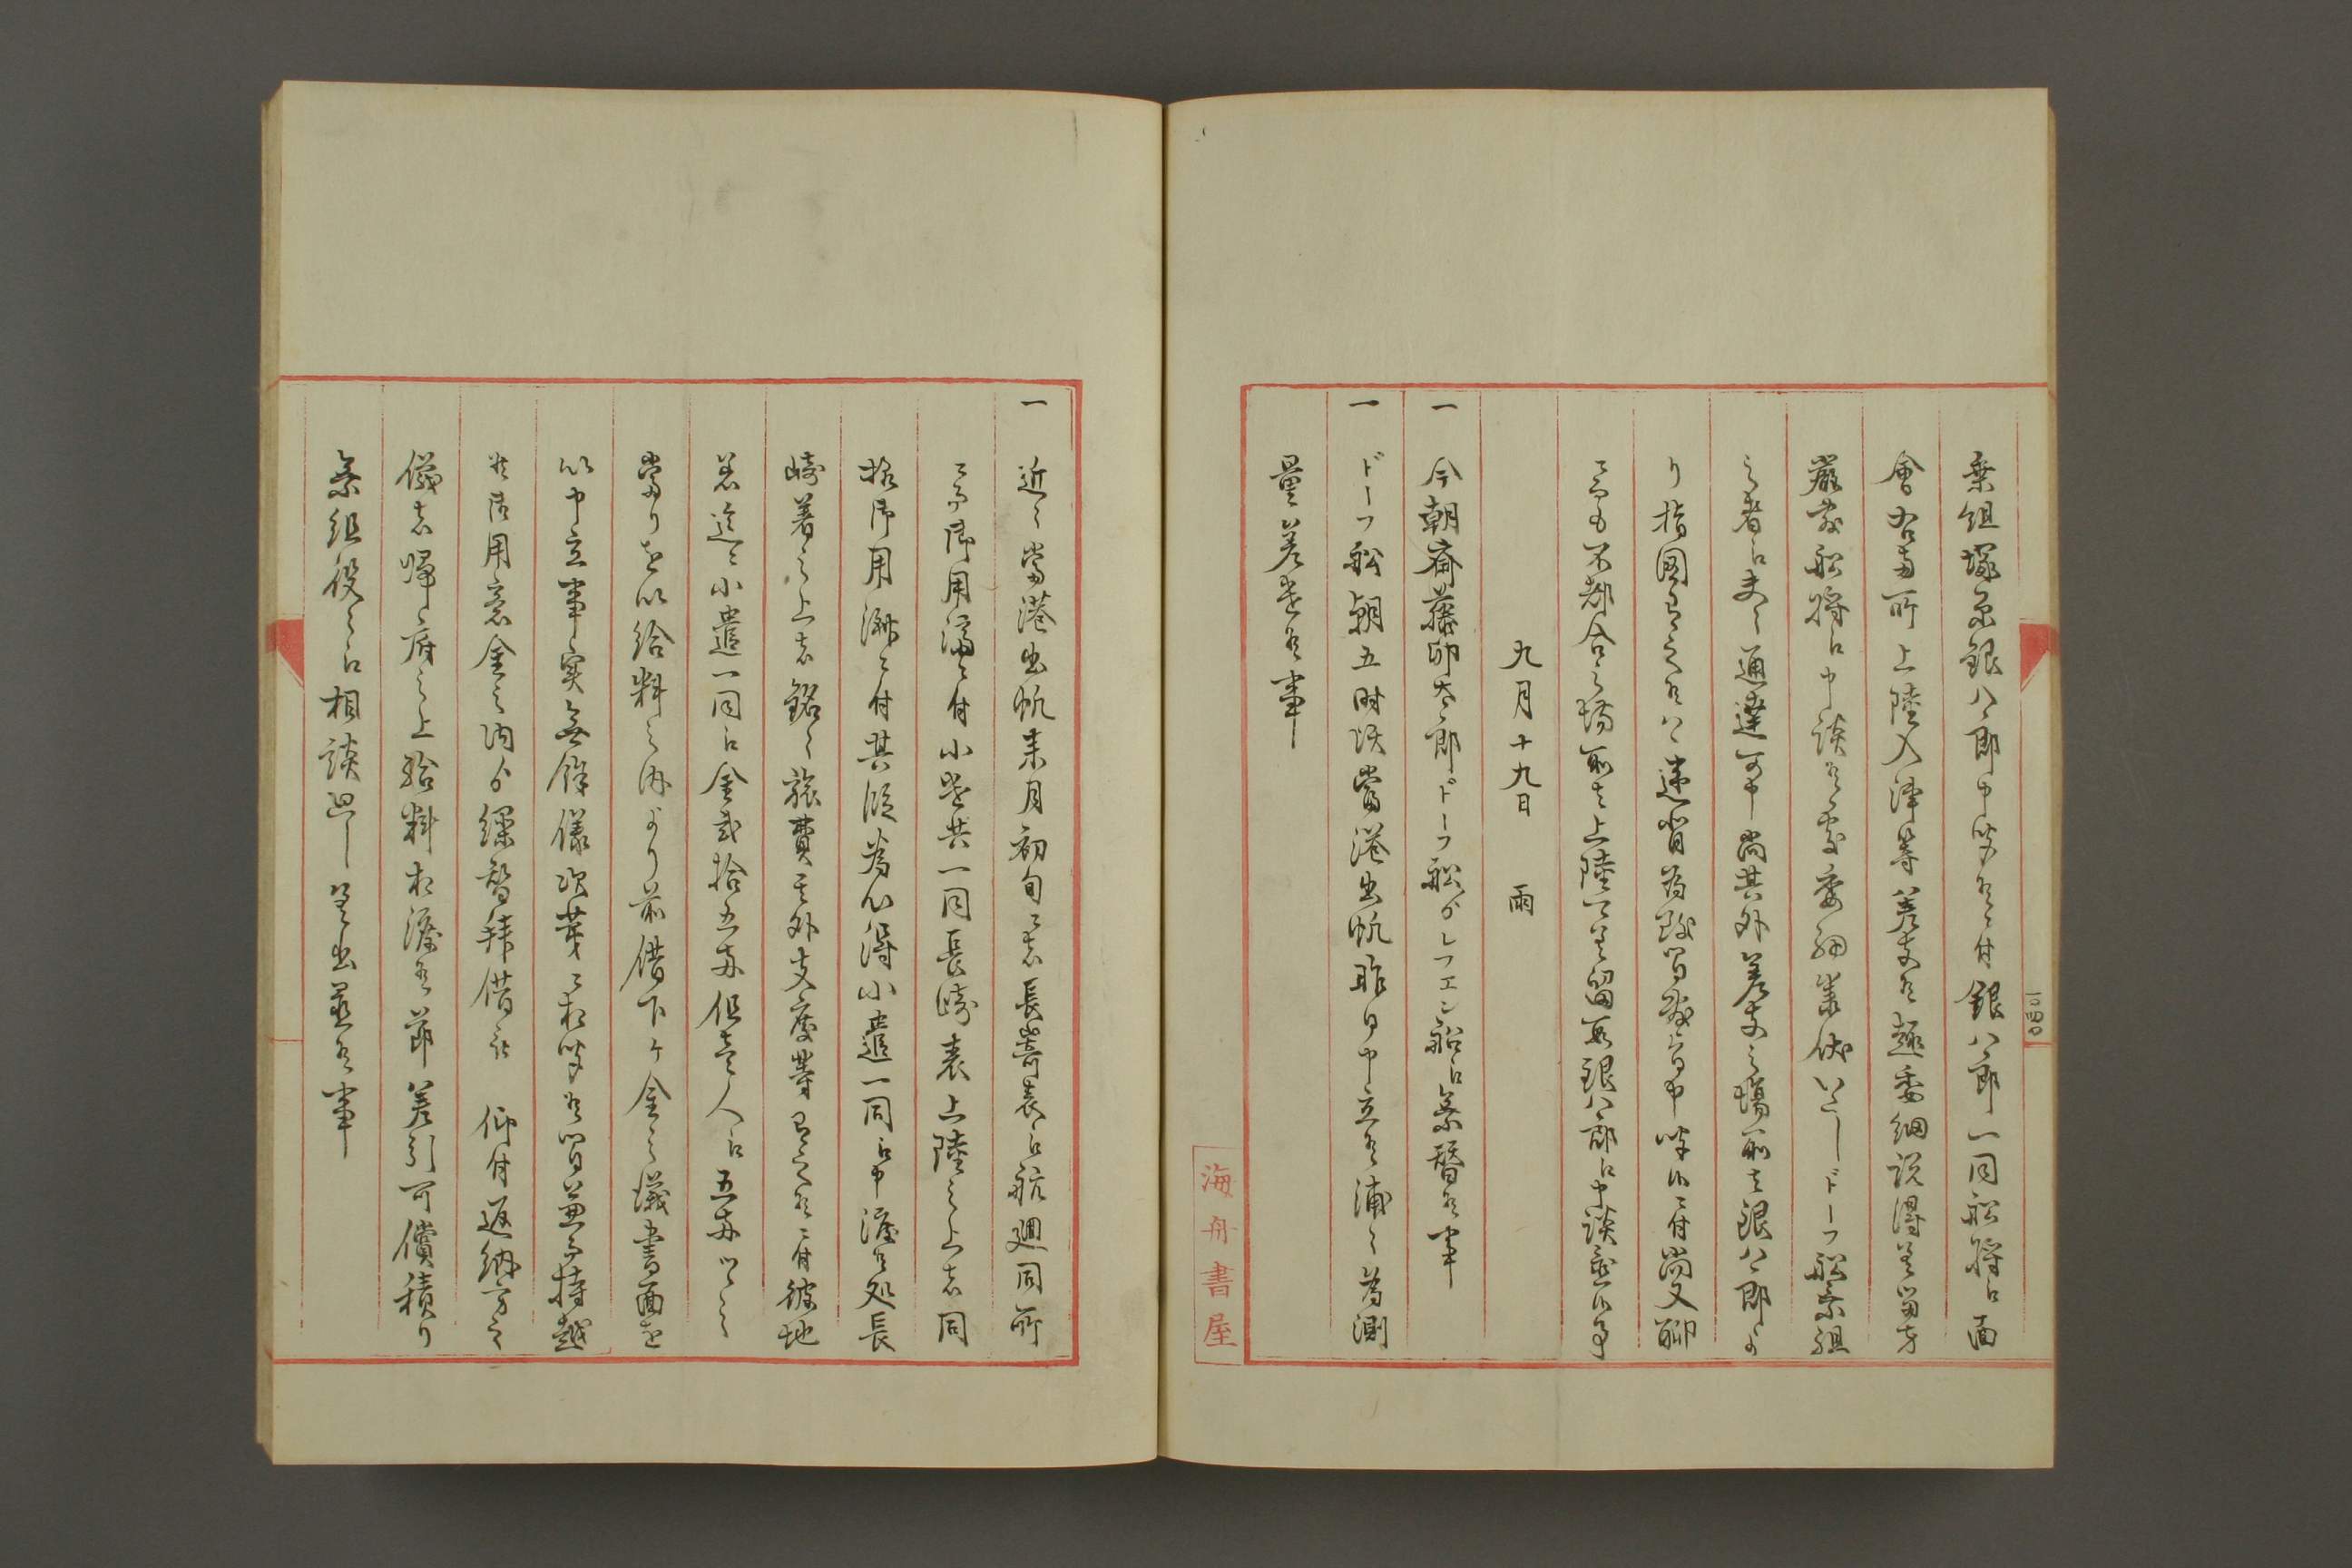 一〇四〇
乗組塚原銀八郎申聞候ニ付銀八郎一同船将江面
會右当所上陸入津等差支候趣委細説得差留方
厳敷船将江申談候處委細業伏いたしドーフ船乗組
之者江夫々通達可申尚其外差支之場所者銀八郎よ
り指図有之候ハヽ違背為致間敷旨申聞候ニ付尚又聊
ニ而も不都合之場所者上陸可差留旨銀八郎江申談置候事
九月十九日　雨
一　今朝斎藤卯太郎ドーフ船ゟレフエン船江乗替候事
一　ドーフ船朝五時頃当港出帆昨日申立候浦々為測
量差遣候事
海舟書屋
一　近々当港出帆来月初旬ニ者長崎表江航廻同所
ニ而御用済ニ付小遣共一同長崎表上陸之上者同
様御用済ニ付其段為心得小遣一同江申渡候処長
崎着之上者銘々旅費其外支度等有之候ニ付彼地
着迄ニ小遣一同江金弐拾五両但壱人江五両ツヽ之
当りを以給料之内より前借下ケ金之儀書面を
以申立事実無餘儀次第ニ相聞候間兼而持越
候御用意金之内ゟ繰替拝借被　仰付返納方之
儀者帰府之上給料相渡候節差引可償積り
乗組役々江相談廻し差出置候事